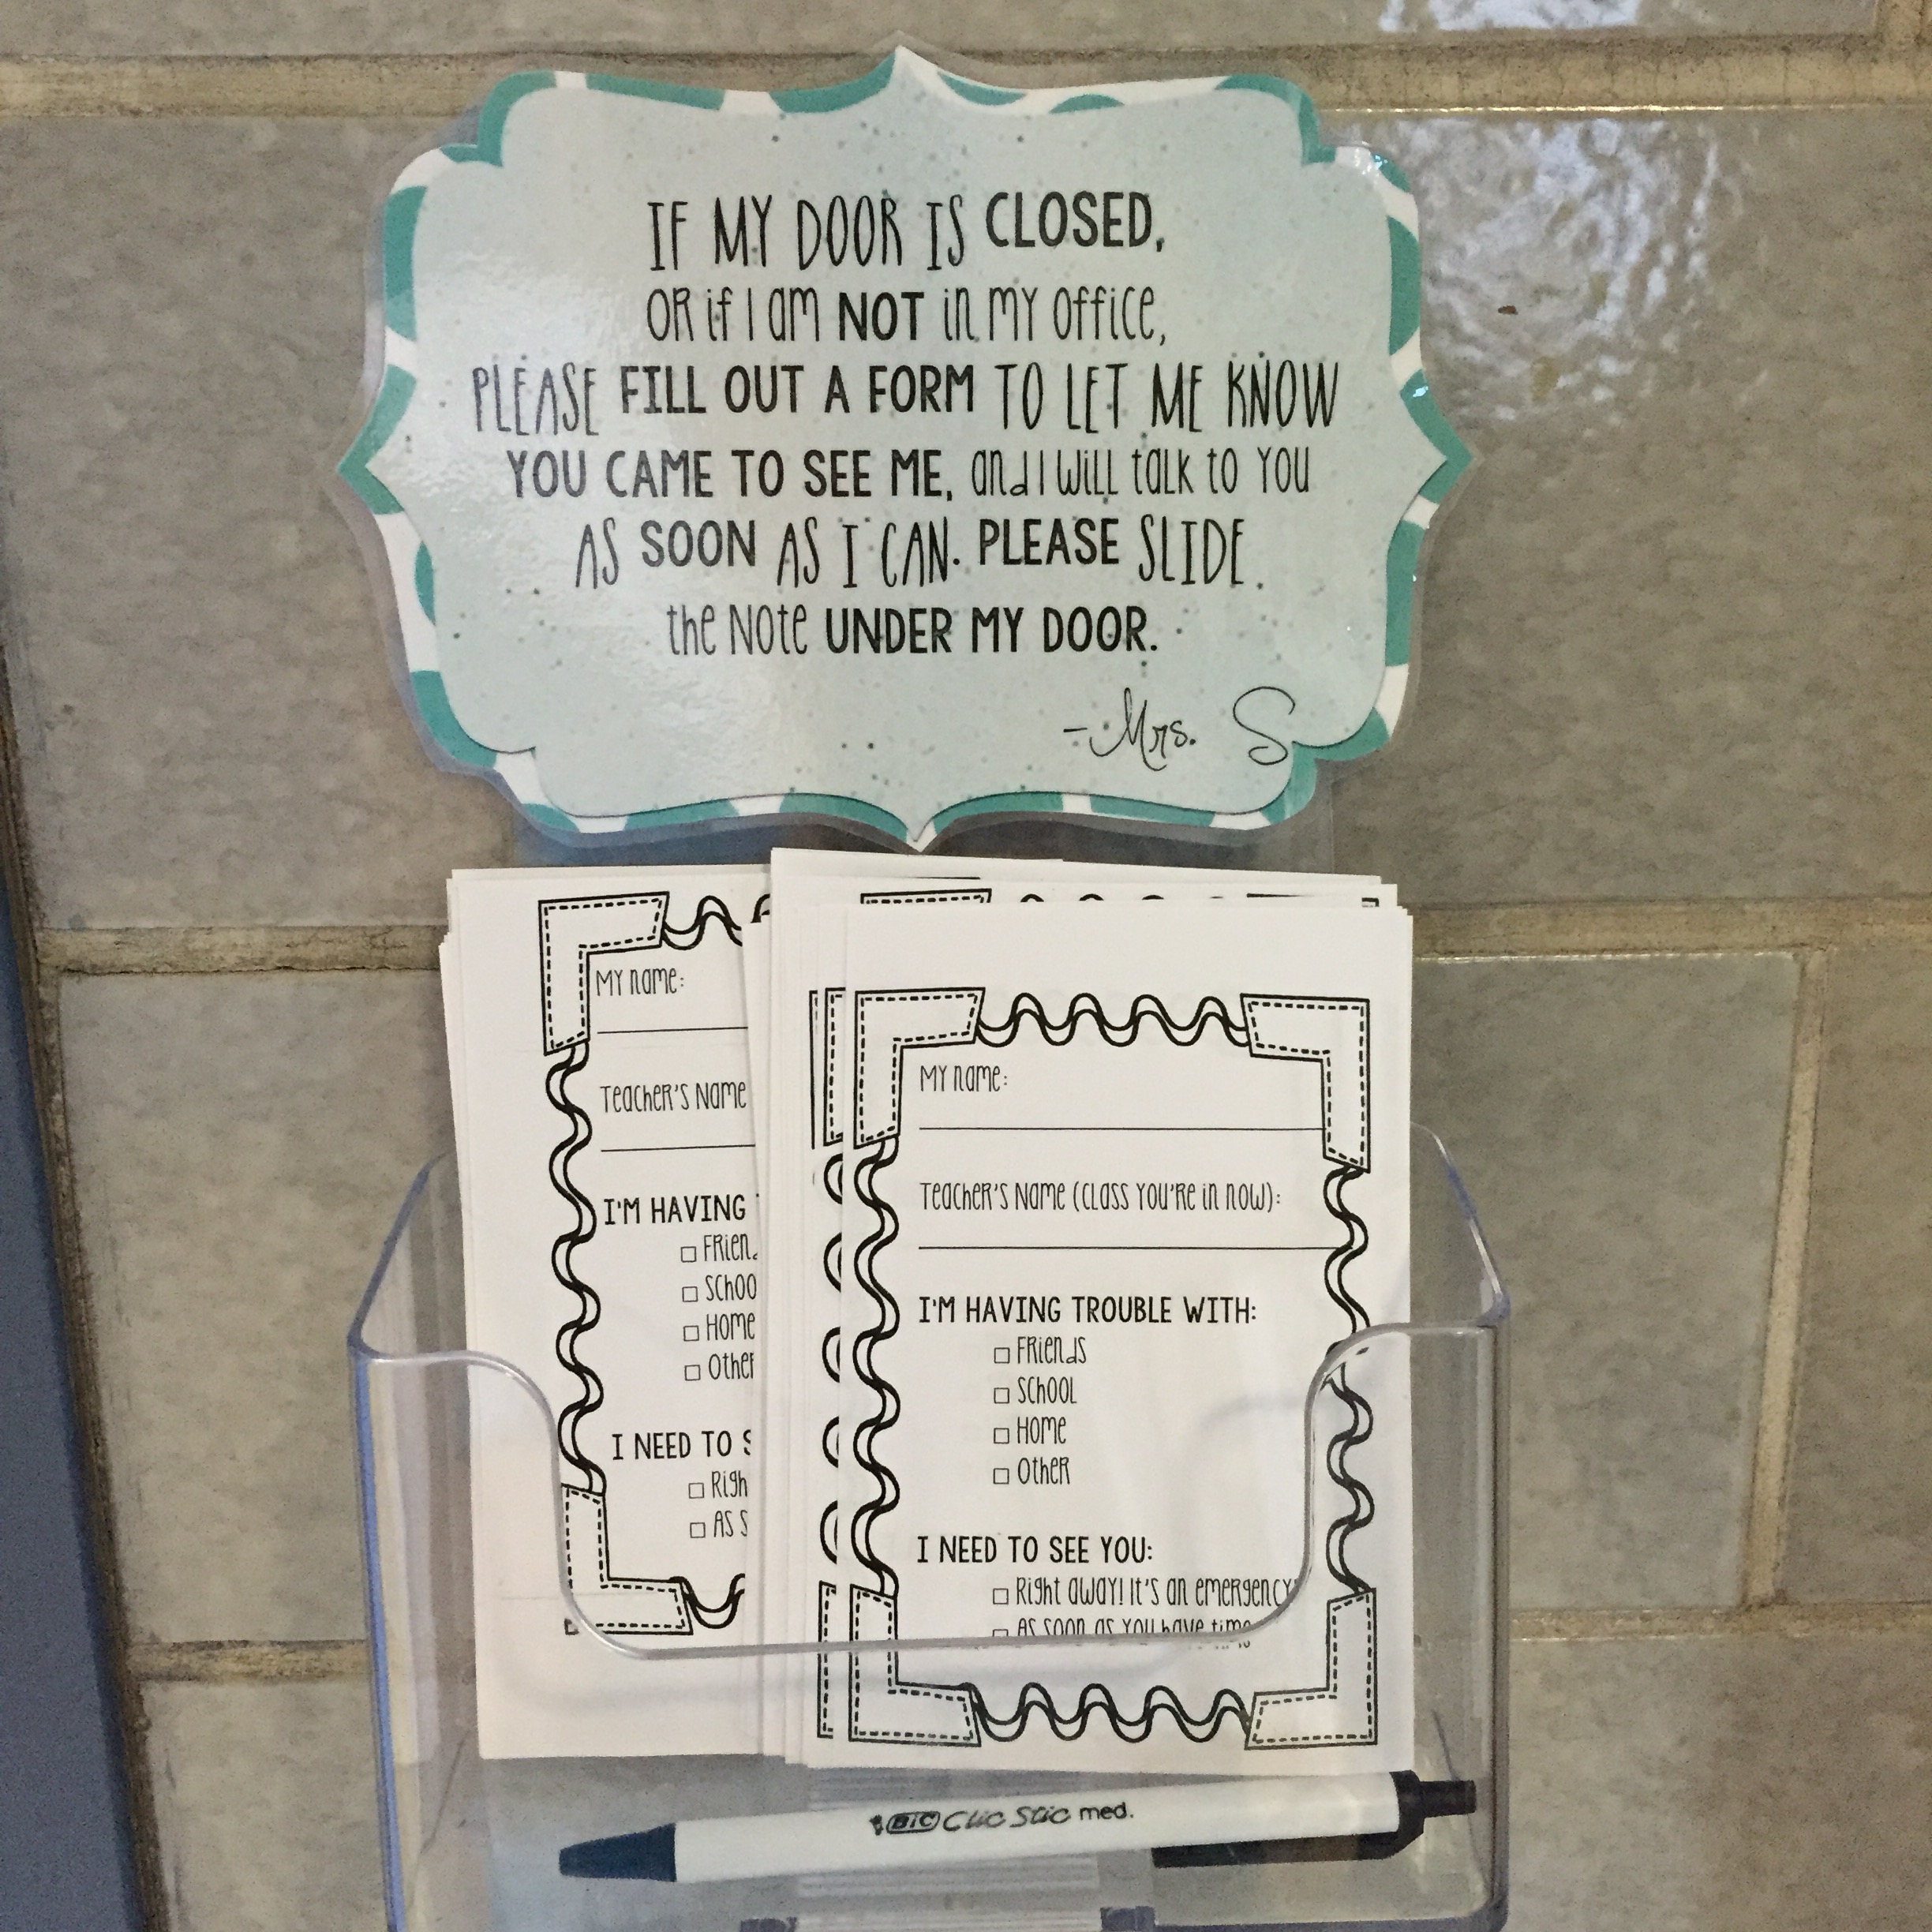 IF MY DOOR IS CLOSED,
OR if I am NOT in my office,
PLEASE FILL OUT A FORM TO LET ME KNOW
YOU CAME TO SEE ME, and I will talk to you
AS SOON AS I CAN. PLEASE SLIDE
the Note UNDER MY DOOR.
-Mrs. S
My name:
Teacher's Name
I'M HAVING
Home
Other
I NEED TO
My name:
Teacher's Name (class you're in now):
I'M HAVING TROUBLE WITH:
Friends
School
Home
Other
I NEED TO SEE YOU:
Right away! It's an emergency
As soon as you have time
BIC Clic Stic med.